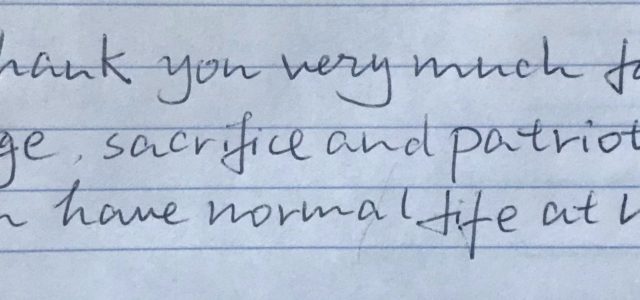 hank you very much fo
ge, sacrifice and patriot
n have normal life at h